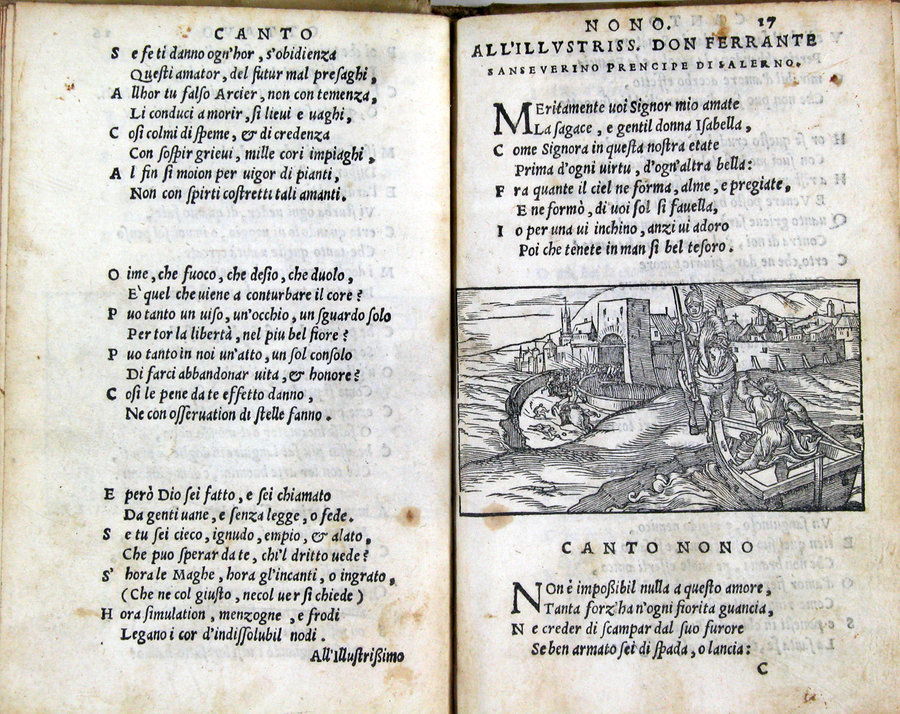 CANTO
S e fe ti danno ogn'hor, s'obidienza
Questi amator, del futur mal presaghi,
A llhor tu falso Arcier, non con temenza,
Li conduci a morir, si lieui e uaghi,
C osi colmi di speme, & di credenza
Con sospir grieui, mille cori impiaghi,
A l fin si moion per uigor di pianti,
Non con spirti costretti tali amanti.
O ime, che fuoco, che desio, che duolo,
E' quel che uiene a conturbare il core?
P uo tanto un uiso, un'occhio, un sguardo solo
Per tor la libertà, nel piu bel fiore?
P uo tanto in noi un'atto, un sol consolo
Di farci abbandonar uita, & honore?
C osi le pene da te effetto danno,
Ne con osseruation di stelle fanno.
E però Dio sei fatto, e sei chiamato
Da genti uane, e senza legge, o fede.
S e tu sei cieco, ignudo, empio, & alato,
Che puo sperar da te, chi'l dritto uede?
S' hora le Maghe, hora gl'incanti, o ingrato,
(Che ne col giusto, ne col uer si chiede)
H ora simulation, menzogne, e frodi
Legano i cor d'indissolubil nodi.
All'Illustrissimo
NONO. 17
ALL'ILLVSTRISS. DON FERRANTE
SANSEVERINO PRENCIPE DI SALERNO.
MEritamente uoi Signor mio amate
La sagace, e gentil donna Isabella,
C ome Signora in questa nostra etate
Prima d'ogni uirtu, d'ogn'altra bella:
F ra quante il ciel ne forma, alme, e pregiate,
E ne formò, di uoi sol si fauella,
I o per una ui inchino, anzi ui adoro
Poi che tenete in man si bel tesoro.
CANTO NONO
NOn è impossibil nulla a questo amore,
Tanta forz'ha n'ogni fiorita guancia,
N e creder di scampar dal suo furore
Se ben armato sei di spada, o lancia:
C